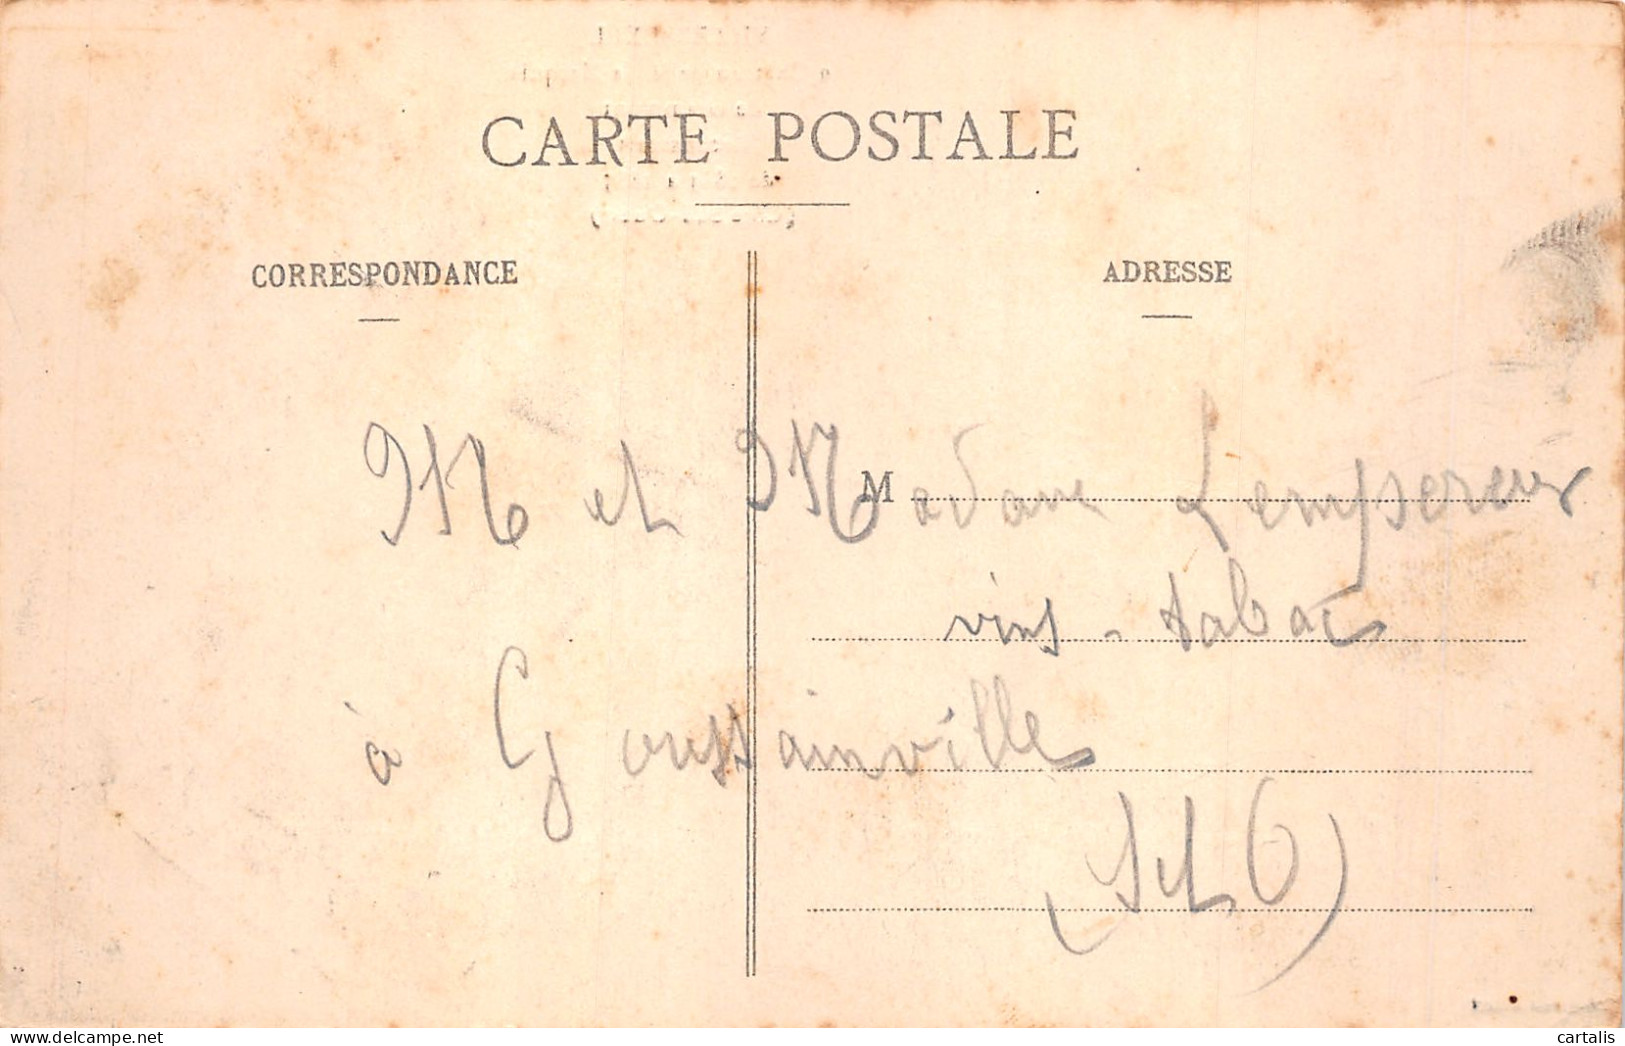 CARTE POSTALE
CORRESPONDANCE
ADRESSE
M et Madame Lempereur
M
vins - tabac
à Goussainville
(S et O)
cartalis
delcampe.net